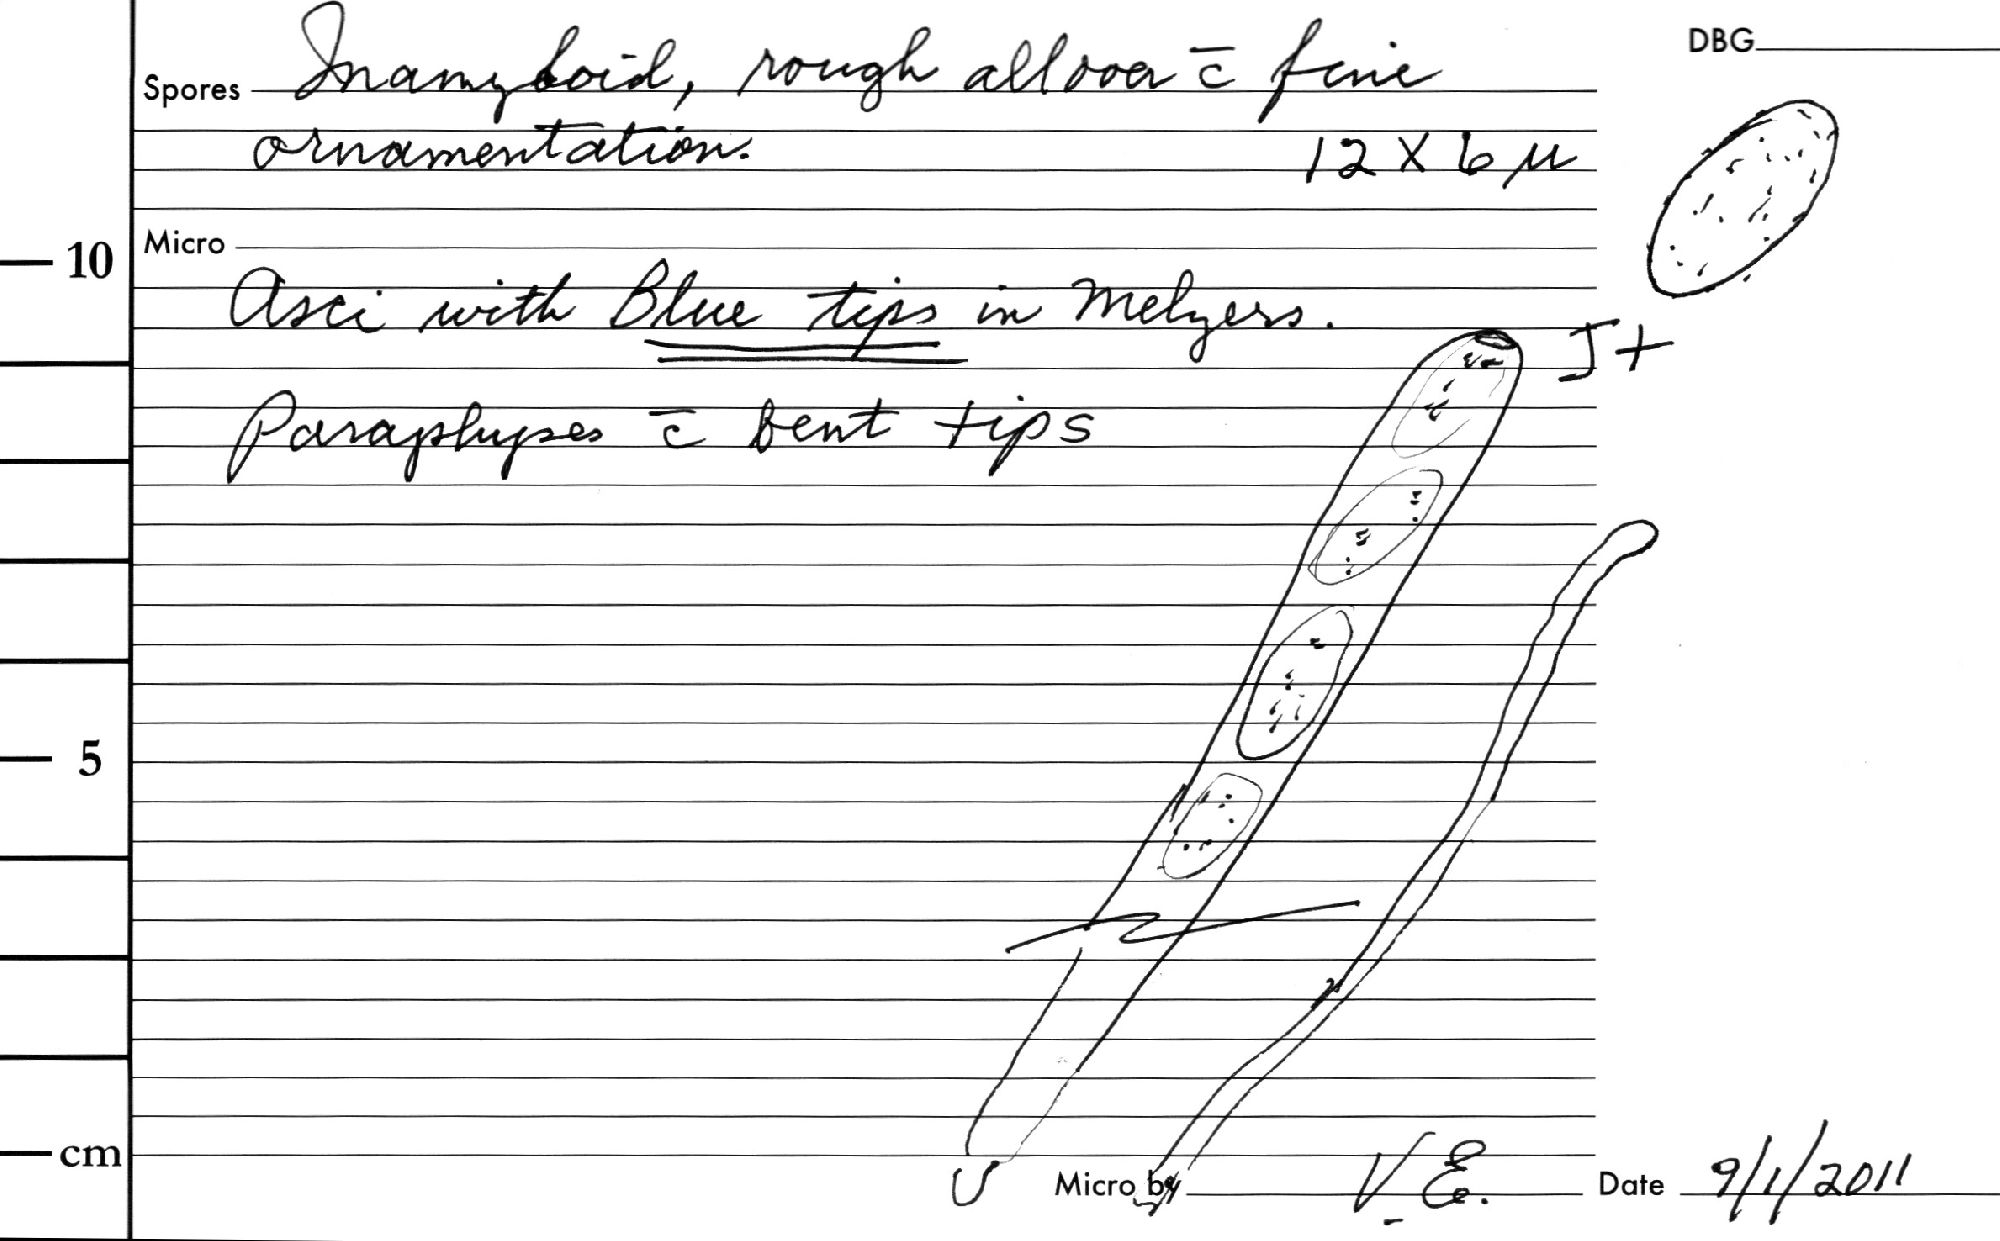 DBG
Spores Inamyloid, rough all over c̄ fine
ornamentation. 12 X 6 µ
Micro
10
Asci with Blue tips in Melzers.
J+
Paraphyses c̄ bent tips
5
cm
Micro by V.E. Date 9/1/2011